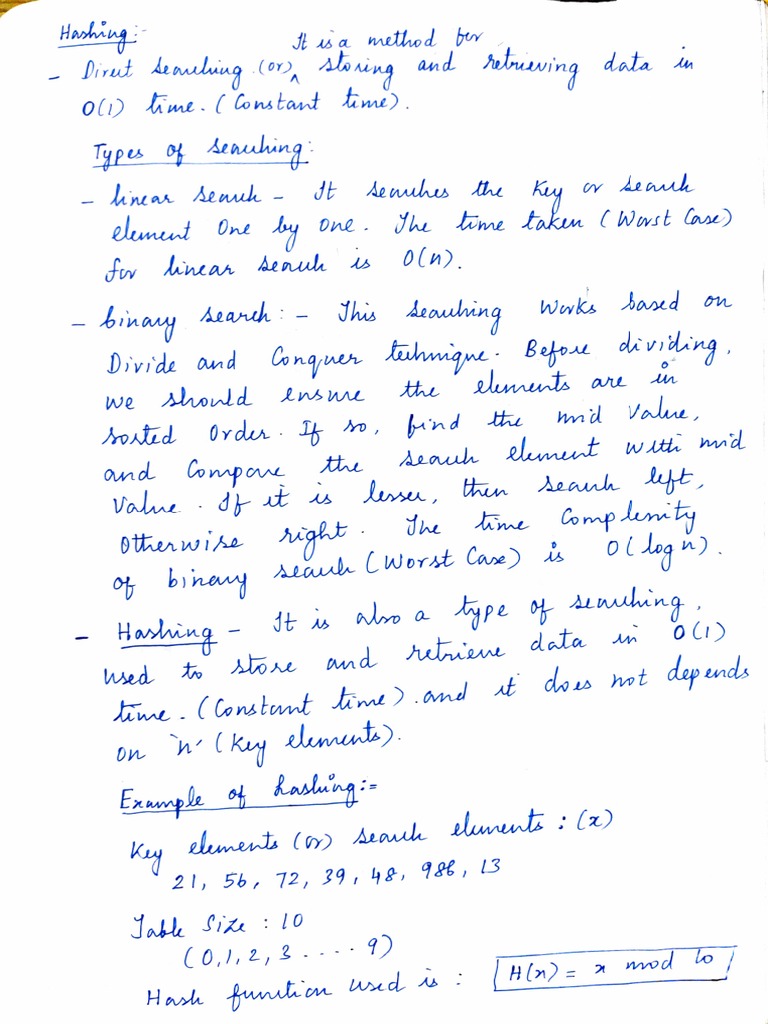 Hashing:-
It is a method for
- Direct searching (or) ^ storing and retrieving data in
O(1) time. (Constant time).
Types of searching:
- linear search - It searches the key or search
element One by One. The time taken (Worst Case)
for linear search is O(n).
- binary search: - This searching works based on
Divide and Conquer technique. Before dividing,
we should ensure the elements are in
sorted Order. If so, find the mid value,
and compare the search element with mid
value. If it is lesser, then search left,
Otherwise right. The time Complexity
of binary search (Worst Case) is O(log n).
- Hashing - It is also a type of searching,
used to store and retrieve data in O(1)
time. (Constant time). and it does not depends
on 'n' (key elements).
Example of hashing:=
Key elements (or) search elements : (x)
21, 56, 72, 39, 48, 986, 13
Table Size : 10
(0,1,2,3 .... 9)
Hash function used is : H(x) = x mod 10